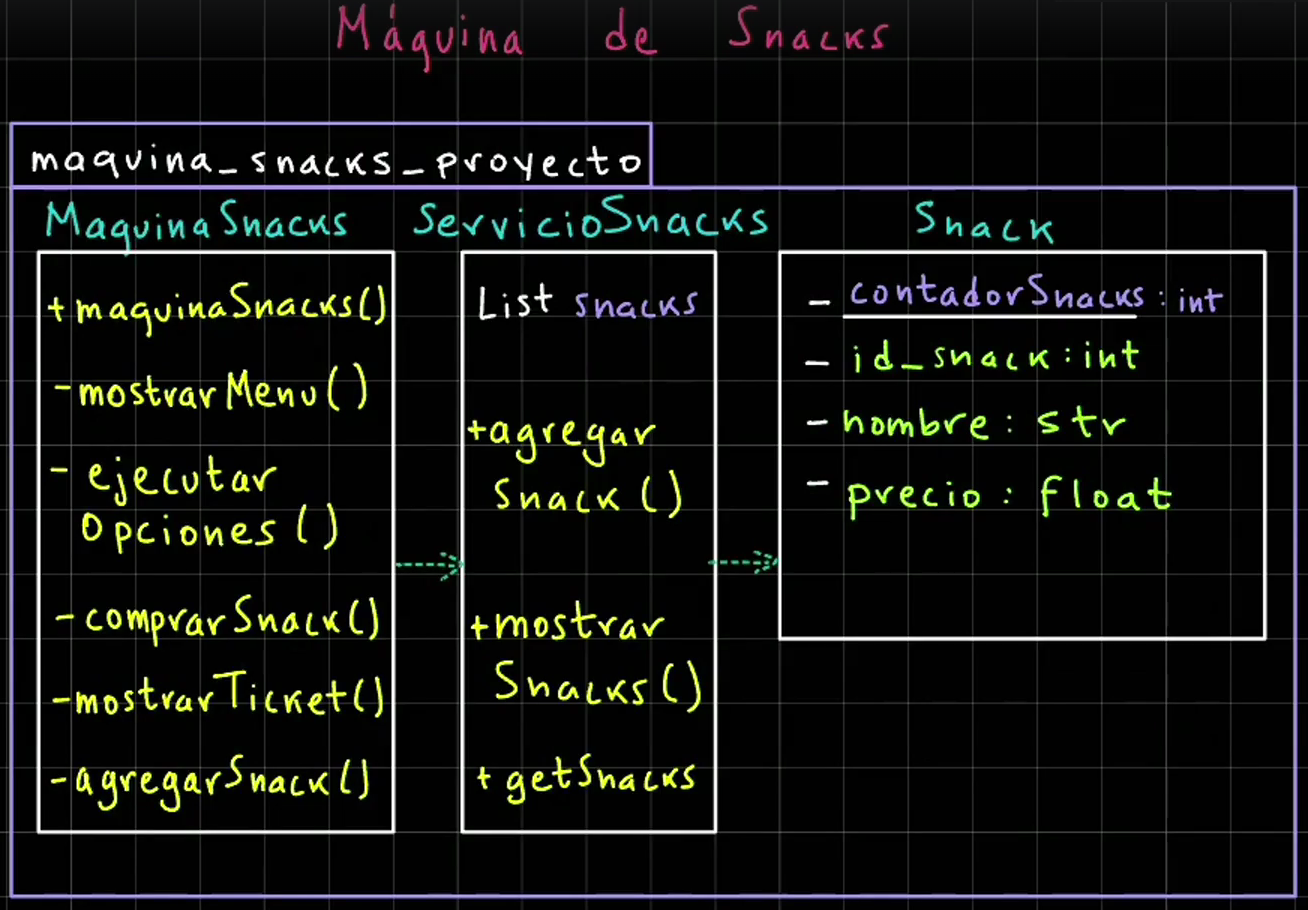 Máquina de Snacks
maquina_snacks_proyecto
MaquinaSnacks
+maquinaSnacks()
-mostrarMenu()
- ejecutar
Opciones()
-comprarSnack()
-mostrarTicket()
-agregarSnack()
ServicioSnacks
List snacks
+agregar
Snack()
+mostrar
Snacks()
+ getSnacks
Snack
- contadorSnacks: int
- id_snack: int
- nombre: str
- precio: float